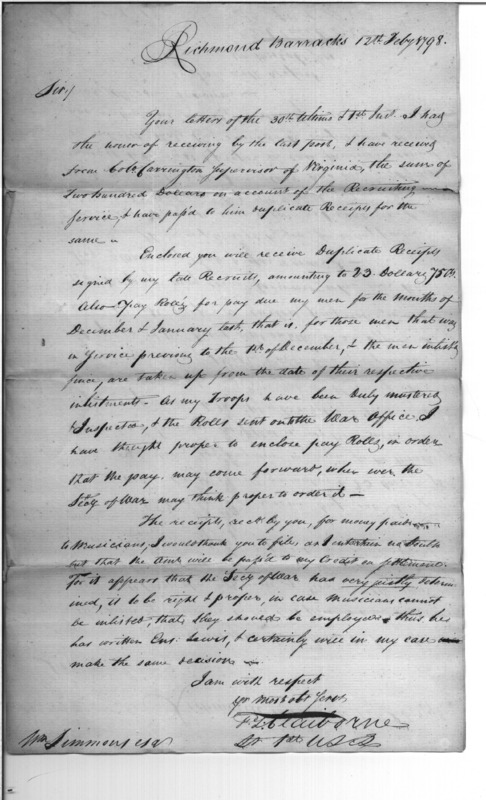 Richmond Barracks 12th Feby 1798.
Sir,/
Your letters of the 30th ultimo & 1st Inst. I had
the honor of receiving by the last post, & have received
from Colo. Carrington Supervisor of Virginia, the sum of
Two hundred Dollars on account of the Recruiting
Service, & have pass'd to him Duplicate Receipts for the
same -
Enclosed you will receive Duplicate Receipts
signed by my late Recruits, amounting to 23 Dollars 75 Cts.
Also Pay Rolls for pay due my men for the months of
December & January last, that is, for those men that was
in Service previous to the 1st of December, & the men inlisted
since, are taken up from the date of their respective
inlistments - As my Troops have been duly mustered
& Inspected, & the Rolls sent on to the War Office, I
have thought proper to enclose pay Rolls, in order
that the pay may come forward, when ever the
Secy of War may think proper to order it -
The receipts, reced by you, for money paid
to Musicians, I would thank you to file, as I entertain no doubt
but that the Amt. will be pass'd to my Credit on settlement
For it appears that the Secy of War has very justly determ
ined, it to be right & proper, in case Musicians cannot
be inlisted, that they should be employed, thus he
has written Ens: Lewis, & certainly will in my case
make the same decision -
I am with respect
yr most obt Servt
F L Claiborne
Lt 1st U S R
Wm Simmons esqr